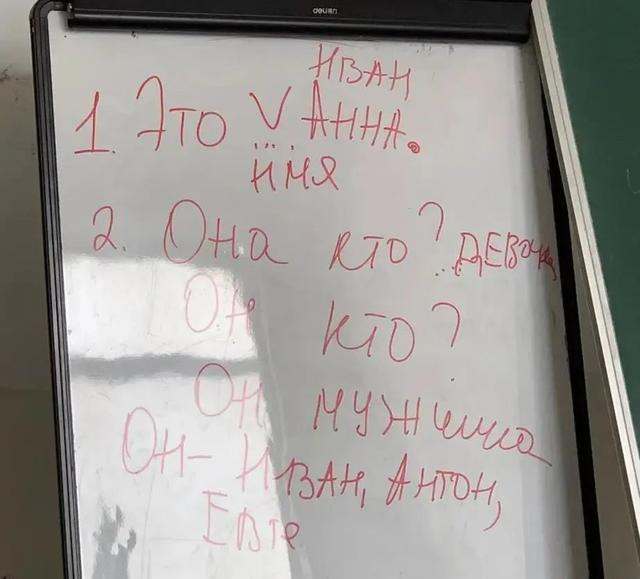 deli得力
ИВАН
1. Это V АННА.
...
ИМЯ
2. Она кто? ..ДЕВОЧКА
Он кто?
Он мужчина
Он- ИВАН, АНТОН,